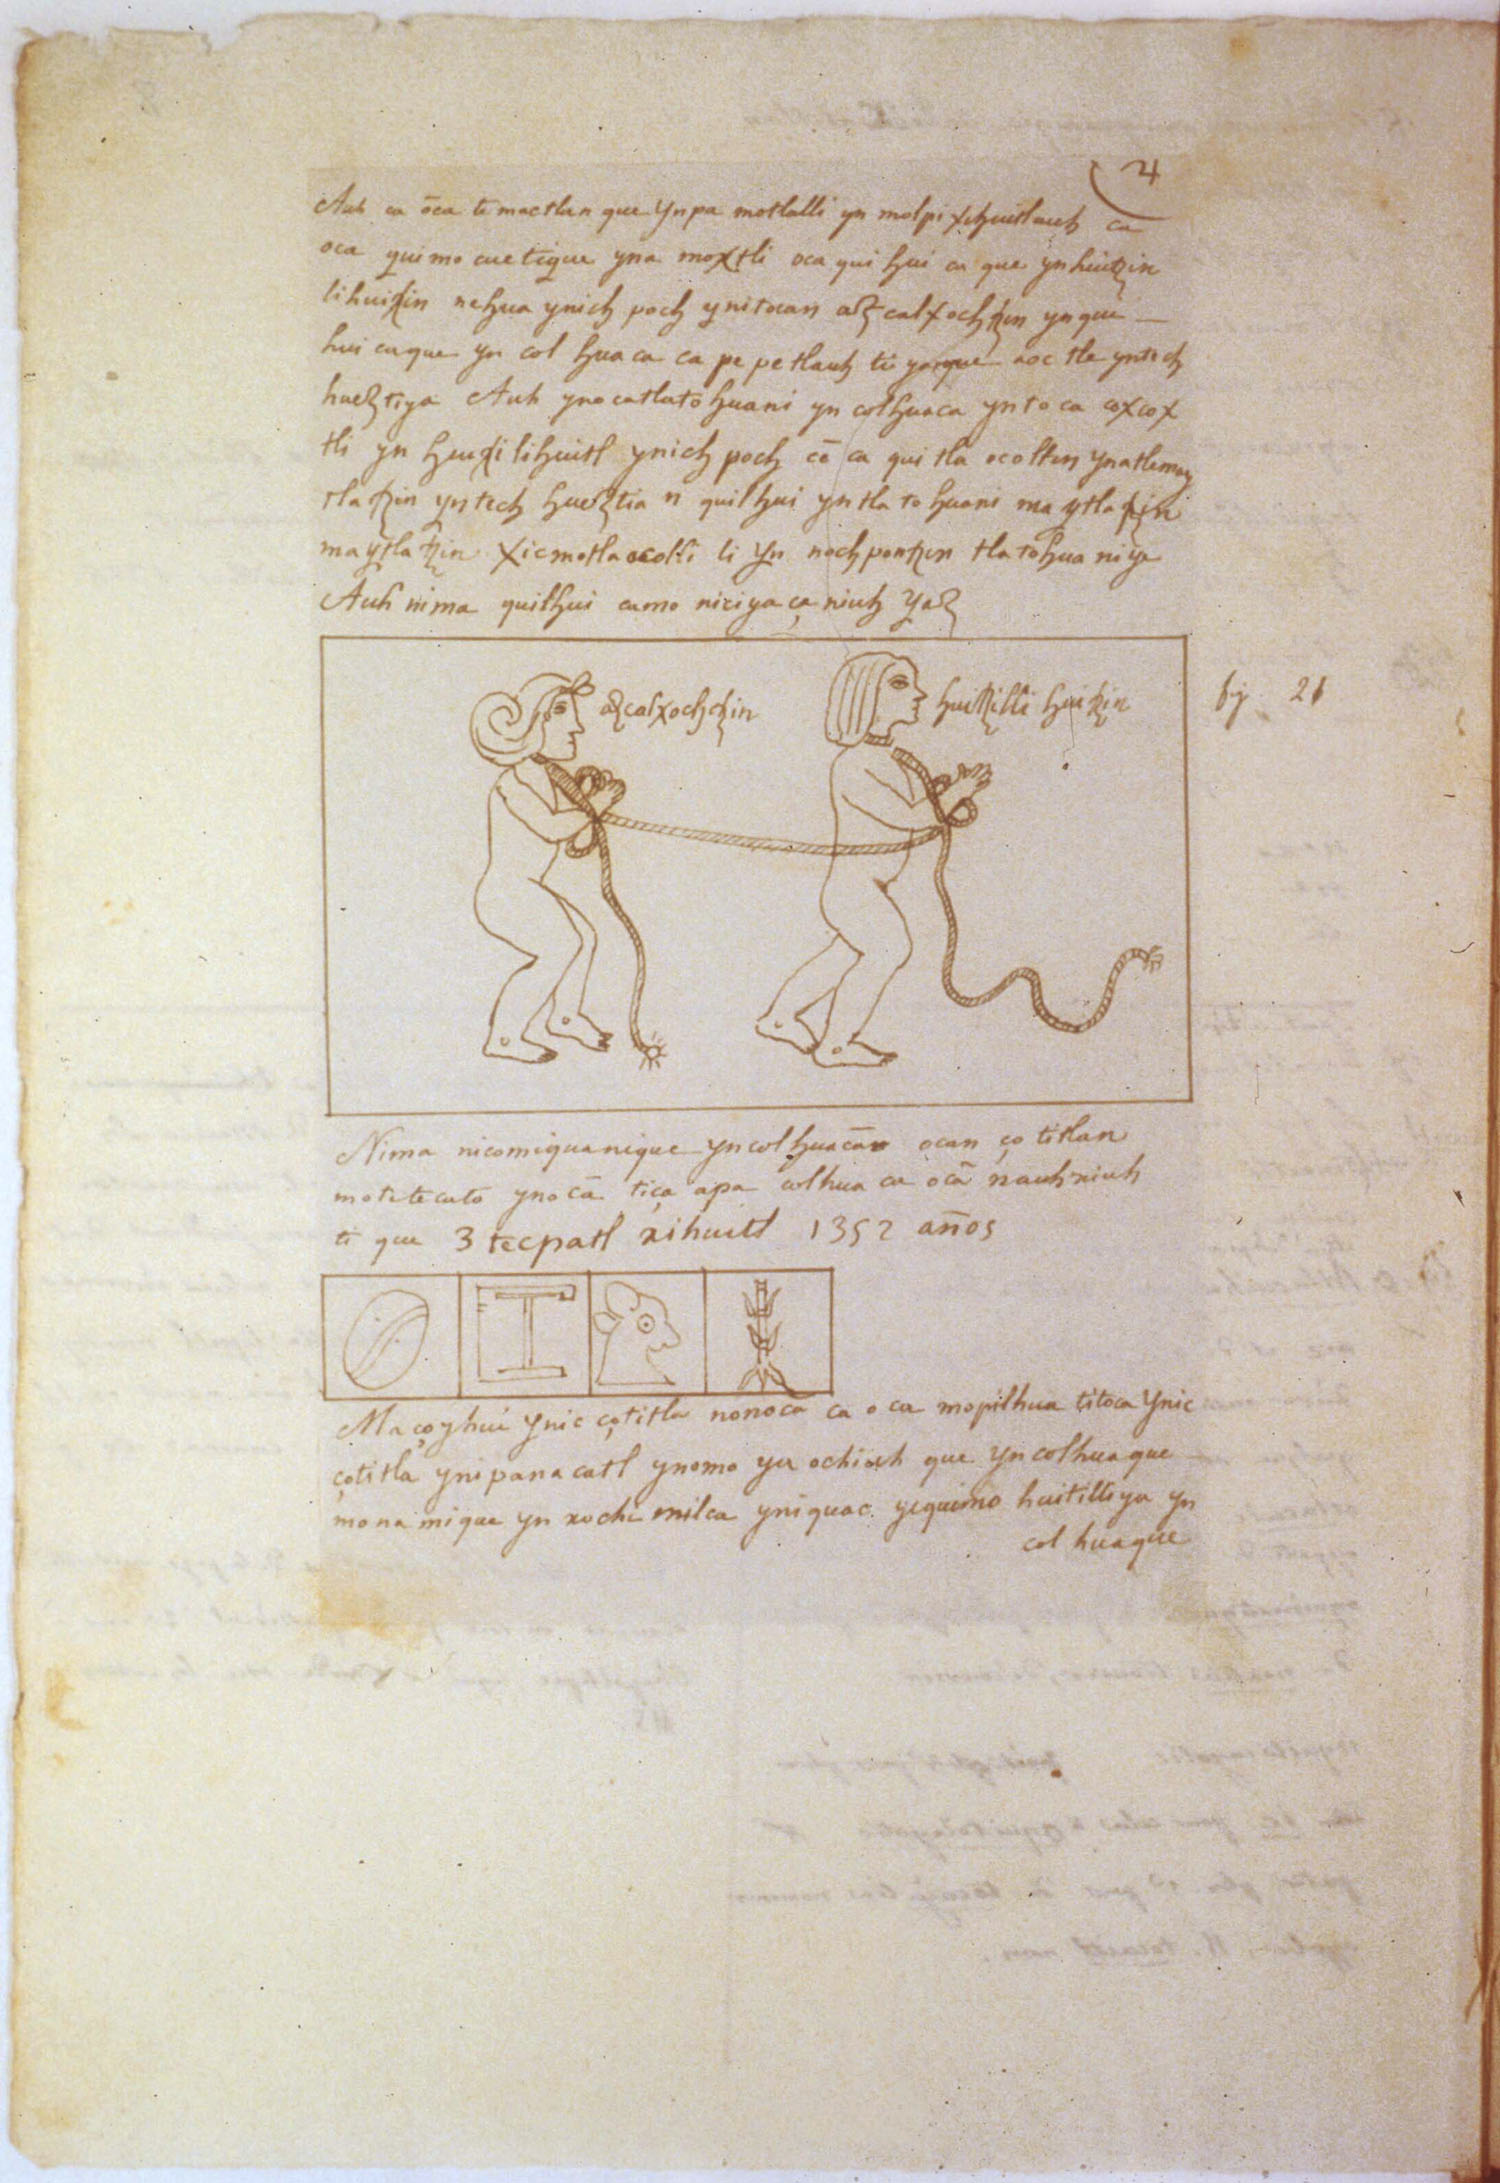 4
Auh ca ōca te mactlan que Ynpa motlalli yn molpi xihuitlauh ca
oca quimo cuetique yna moxtli oca qui hui ca que ynhuitzin
lihuitzin nehua ynich poch ynitocan azcalxochtzin ynque —
hui caque yn col huaca ca pe petlauh tiyaque aoc tle yntech
hueztiya Auh ynocatlatohuani yn colhuaca yntoca coxcox
tli yn huitzilihuitl ynich poch cē ca qui tla ocoltin ynatlemay
tlatzin yntech hueztia n quilhui yn tla to huani ma ytlatzin
maytlatzin xicmotlaocolli li Yn nochpontzin tlatohua niye
Auh nima quilhui camo niciya ça niuh Yaz
azcalxochtzin
huitzilli huitzin
fig 21
Nima nicomiquanique yncolhuacān ocan ço titlan
motetecato ynocā tiça apa colhua ca ocā nauhxiuh
ti que 3 tecpatl xihuitl 1352 años
Ma çoyhui Ynic çotitla nonoca ca oca mopilhua titoca Ynic
çotitla ynipanacatl ynomo ya ochiuh que yn colhuaque
mona mique yn xochi milca yniquac yequimo huitilliya yn
col huaque